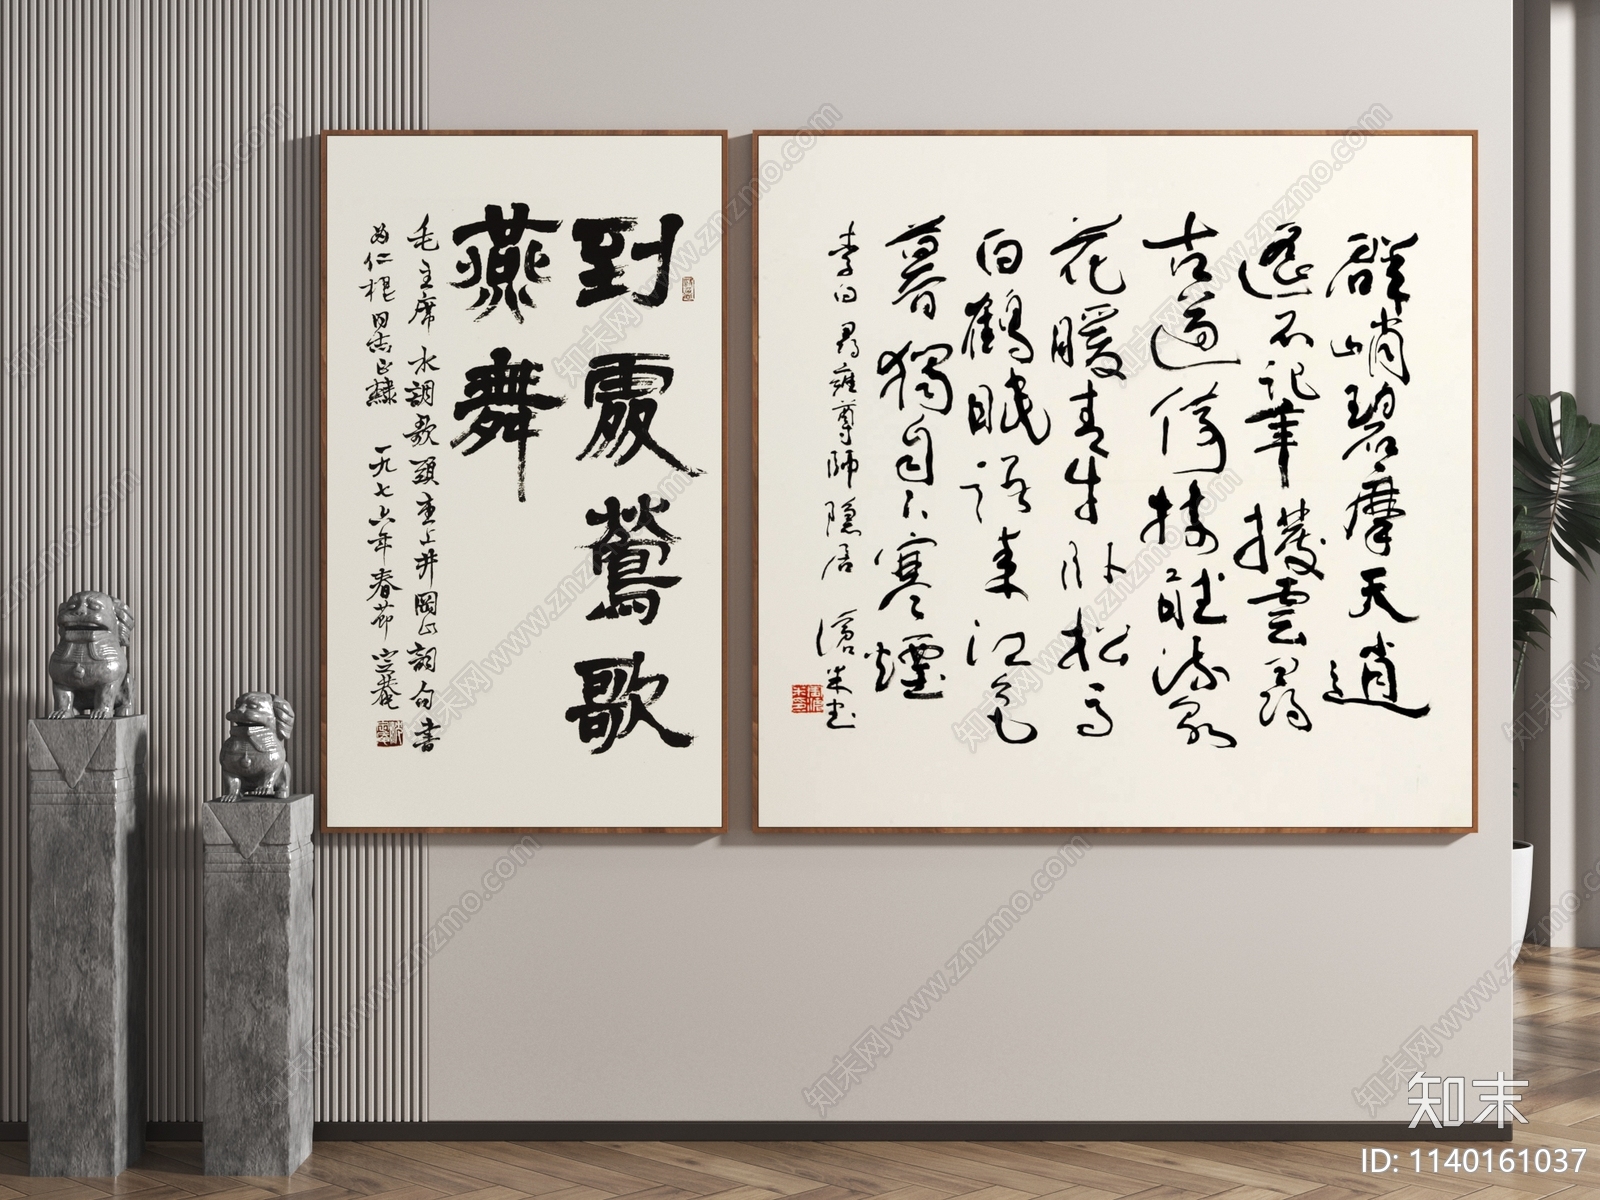 到處鶯歌
燕舞
毛主席水調歌頭重上井岡山詞句書
为仁根同志正隸 一九七六年春節 定菴
群峭碧摩天逍
遙不記年撥雲尋
古道倚樹聽流泉
花暖青牛卧松高
白鶴眠語来江色
暮獨自下寒煙
李白尋雍尊師隐居 滄米书
知末网www.znzmo.com
知末
ID: 1140161037